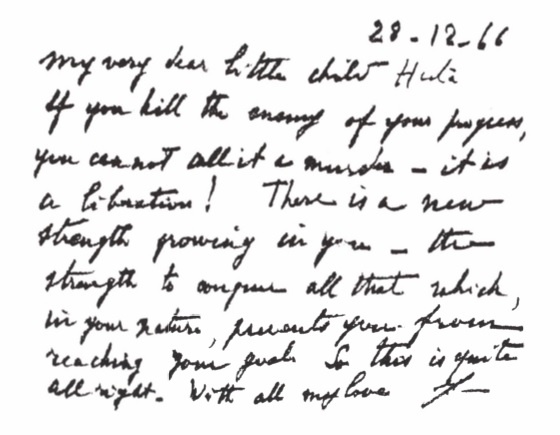 28-12-66
My very dear little child Huta
If you kill the enemy of your progress,
you can not call it a murder – it is
a liberation! There is a new
strength growing in you – the
strength to conquer all that which,
in your nature, prevents you from
reaching your goal. So this is quite
all right. With all my love